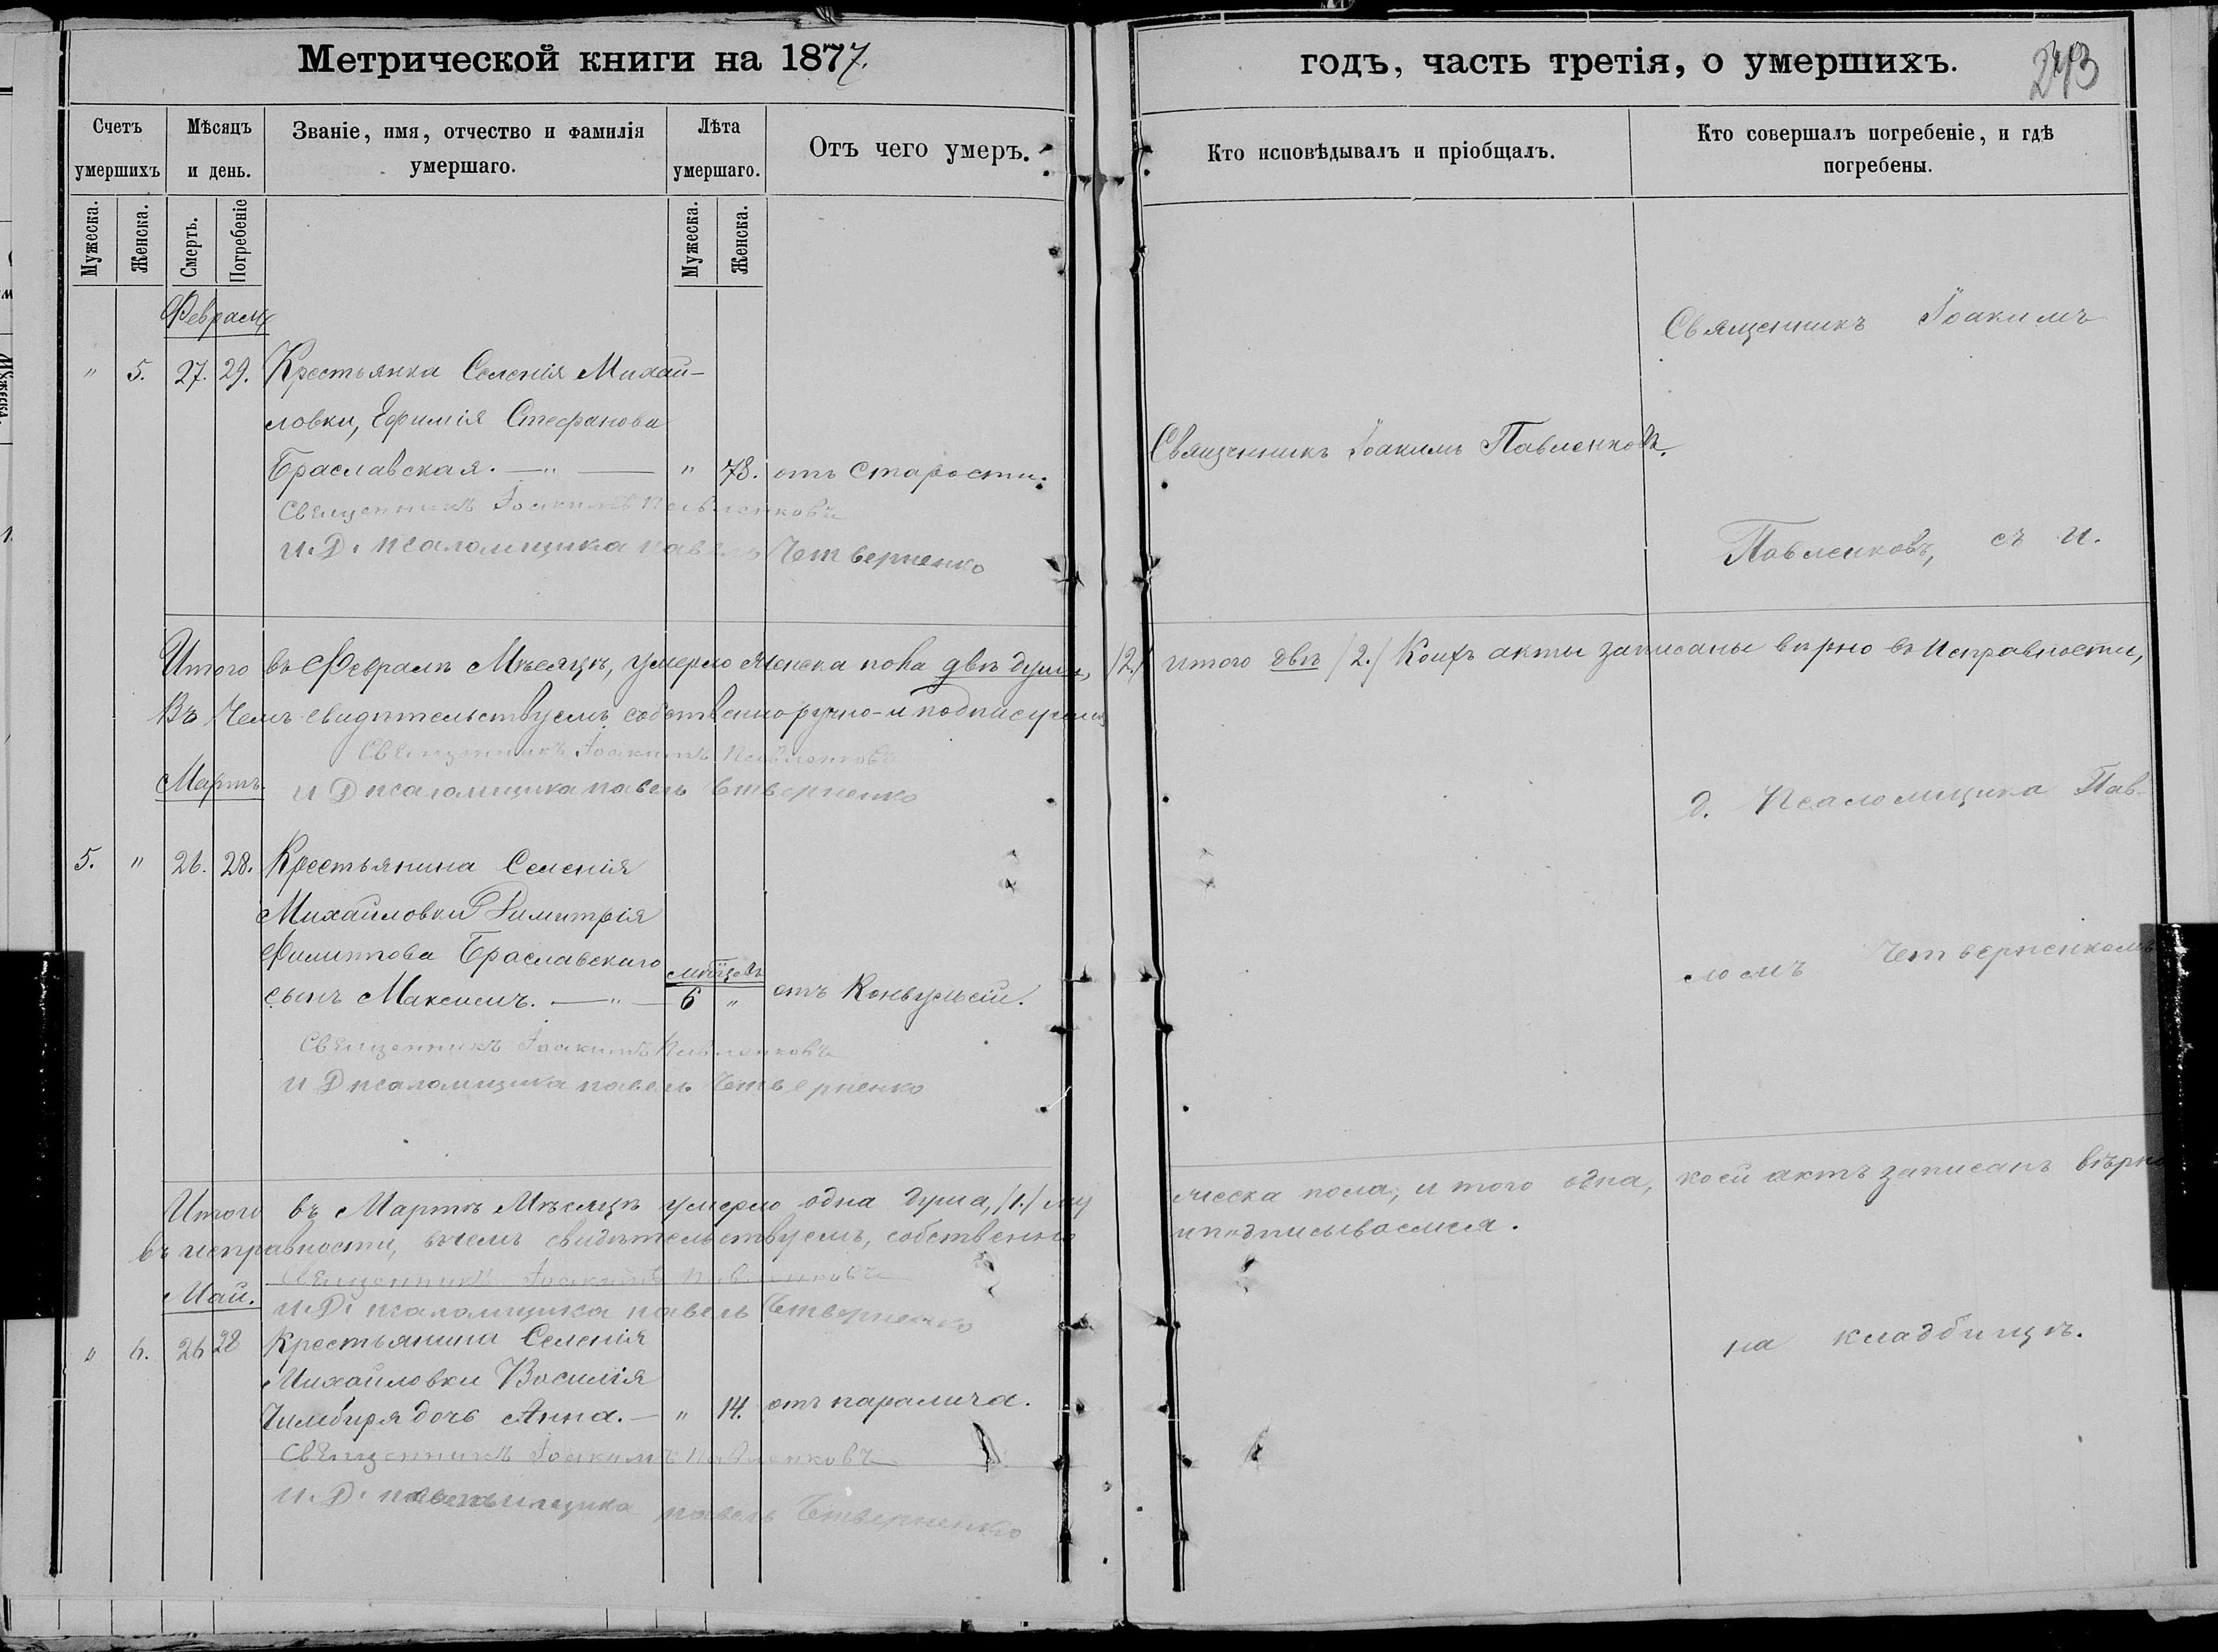 Метрической книги на 1877.
годъ, часть третія, о умершихъ.
243
Счетъ умершихъ
Мѣсяцъ и день.
Званіе, имя, отчество и фамилія умершаго.
Лѣта умершаго.
Отъ чего умеръ.
Кто исповѣдывалъ и пріобщалъ.
Кто совершалъ погребеніе, и гдѣ погребены.
Мужеска.
Женска.
Смерть.
Погребеніе
Мужеска.
Женска.
Февраль
" 5. 27. 29. Крестьянка Селенія Михай-
ловки, Ефимія Стефанова
Браславская. —"— " 78. отъ старости.
Священникъ Іоакимъ Павленковъ
И. Д. псаломщика павелъ Четверненко
Священникъ Іоакимъ Павленковъ.
Священникъ Іоакимъ
Павленковъ, съ и.
Итого въ Февралѣ Мѣсяцѣ, умерло женска пола двѣ души, /2./ итого двѣ /2./ Коихъ акты записаны вѣрно въ Исправности,
Въ Чемъ свидѣтельствуемъ собственноручно-и подписуемъ
Священникъ Іоакимъ Павленковъ
Мартъ.
И Д псаломщика павелъ Четверненко
д. Псаломщика Пав-
5. " 26. 28. Крестьянина Селенія
Михайловки Димитрія
Филиппова Браславскаго
сынъ Максимъ. —"— мѣсяцовъ 6 " отъ Конвульсіи.
ломъ Четверненкомъ
Священникъ Іоакимъ Павленковъ
И Д псаломщика павелъ Четверненко
Итого въ Мартѣ Мѣсяцѣ умерло одна душа, /1./ му
жеска пола, итого одна, коей актъ записанъ вѣрно
въ исправности, вчемъ свидѣтельствуемъ, собственно
и подписываемся.
Священникъ Іоакимъ Павленковъ
Май.
И. Д. псаломщика павелъ Четверненко
" 6. 26 28 Крестьянина Селенія
Михайловки Василія
Чимбиря дочь Анна. — " 14. отъ паралича.
на кладбищѣ.
Священникъ Іоакимъ Павленковъ
И. Д. псаломщика павелъ Четверненко